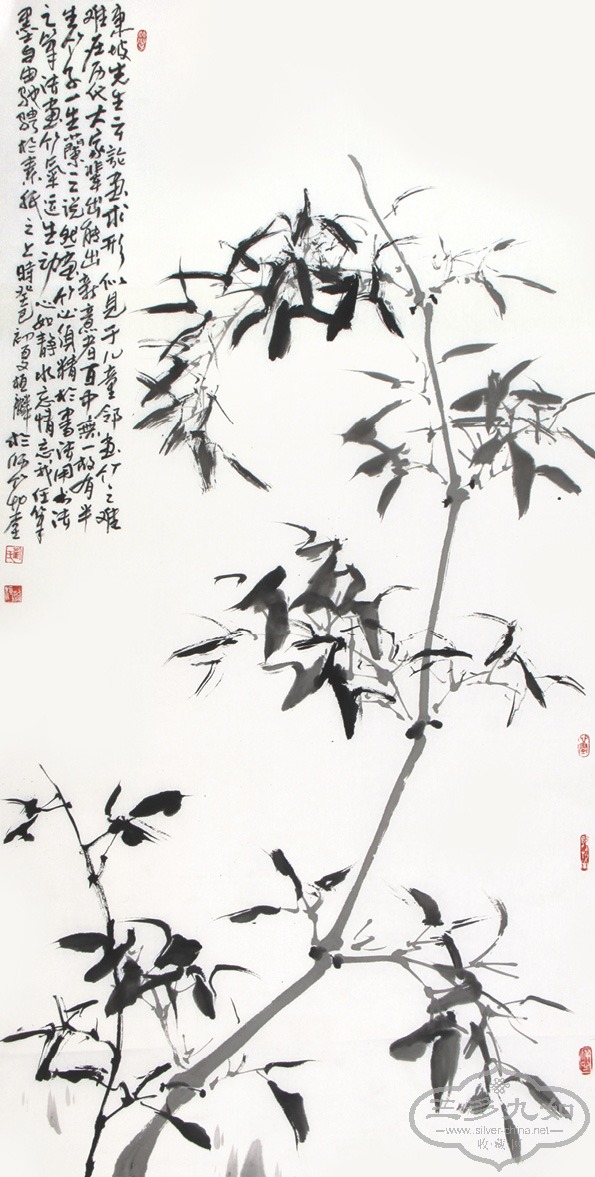 東坡先生云論畫求形似見于儿童鄰畫竹之難
难在历代大家輩出能出新意者百中無一故有半
生竹子一生蘭之说然画竹必須精於書法用书法
之筆法畫竹氣运生动心如静水忘情忘我任筆
墨自由驰騁於素纸之上時癸巳初夏植麟於
三多九如
www.silver-china.net
收藏